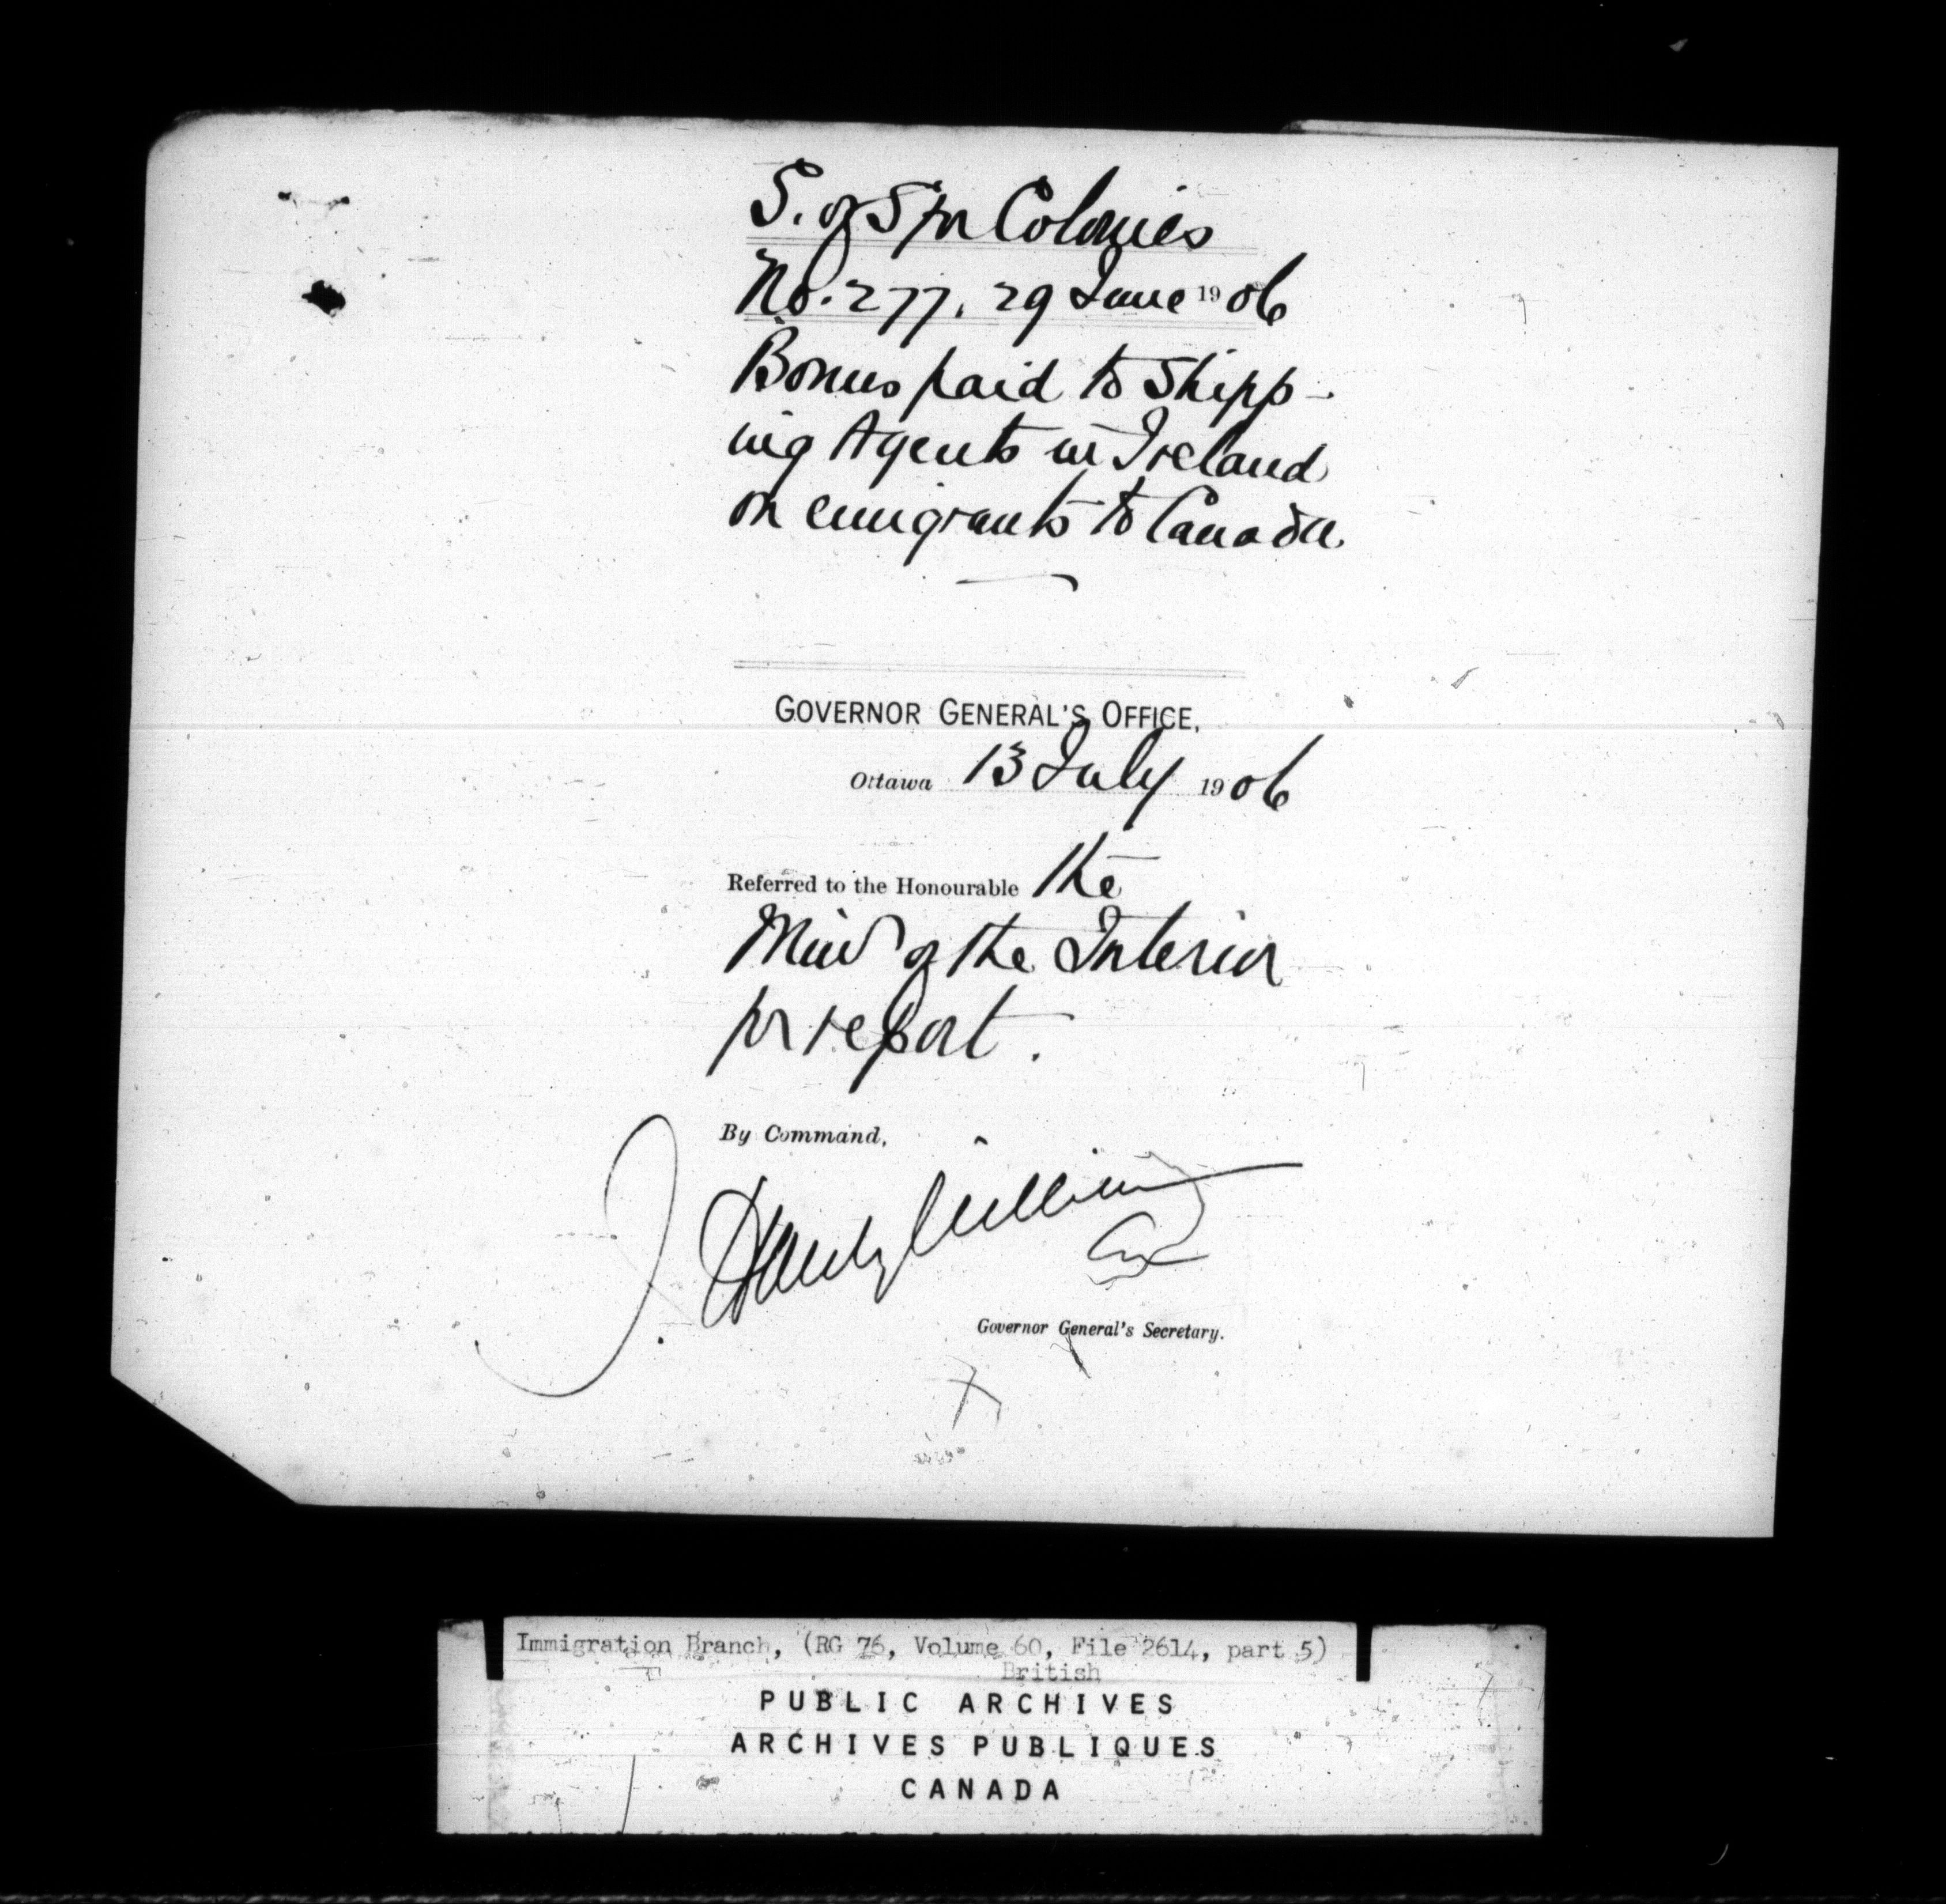 S. of S for Colonies
No. 277. 29 June 1906
Bonus paid to Shipp-
ing Agents in Ireland
on emigrants to Canada.
GOVERNOR GENERAL'S OFFICE,
Ottawa 13 July 1906
Referred to the Honourable the
Min of the Interior
for report.
By Command,
J. Hanbury Williams
Governor General's Secretary.
Immigration Branch, (RG 76, Volume 60, File 2614, part 5)
British
PUBLIC ARCHIVES
ARCHIVES PUBLIQUES
CANADA